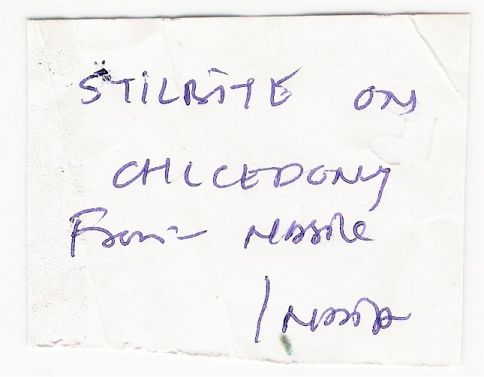 STILBITE ON
CHLCEDONY
From- Nasik
India